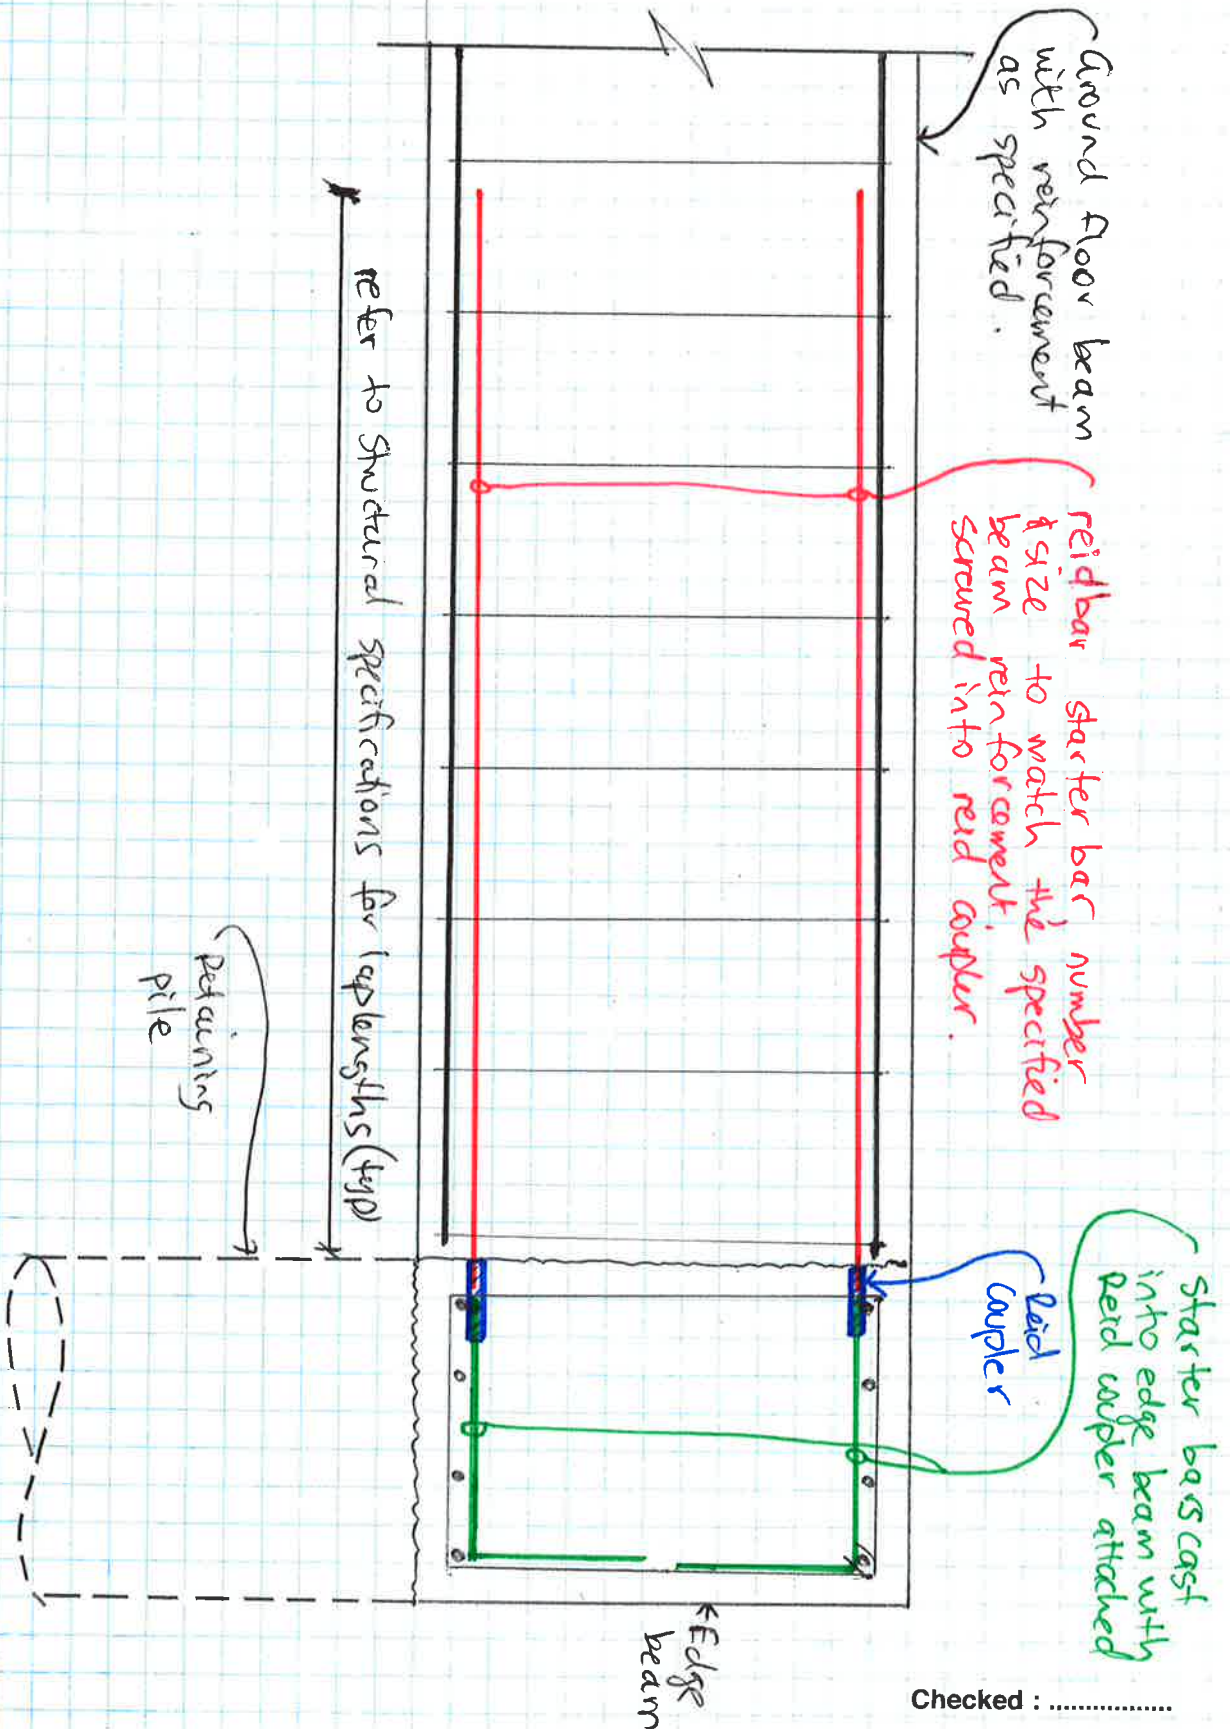 Ground floor beam
with reinforcement
as specified.
reidbar starter bar number
& size to match the specified
beam reinforcement,
screwed into reid coupler.
Starter bars cast
into edge beam with
Reid coupler attached
Reid
Coupler
refer to Structural specifications for laplengths (typ)
Retaining
pile
Edge
beam
Checked : ..................